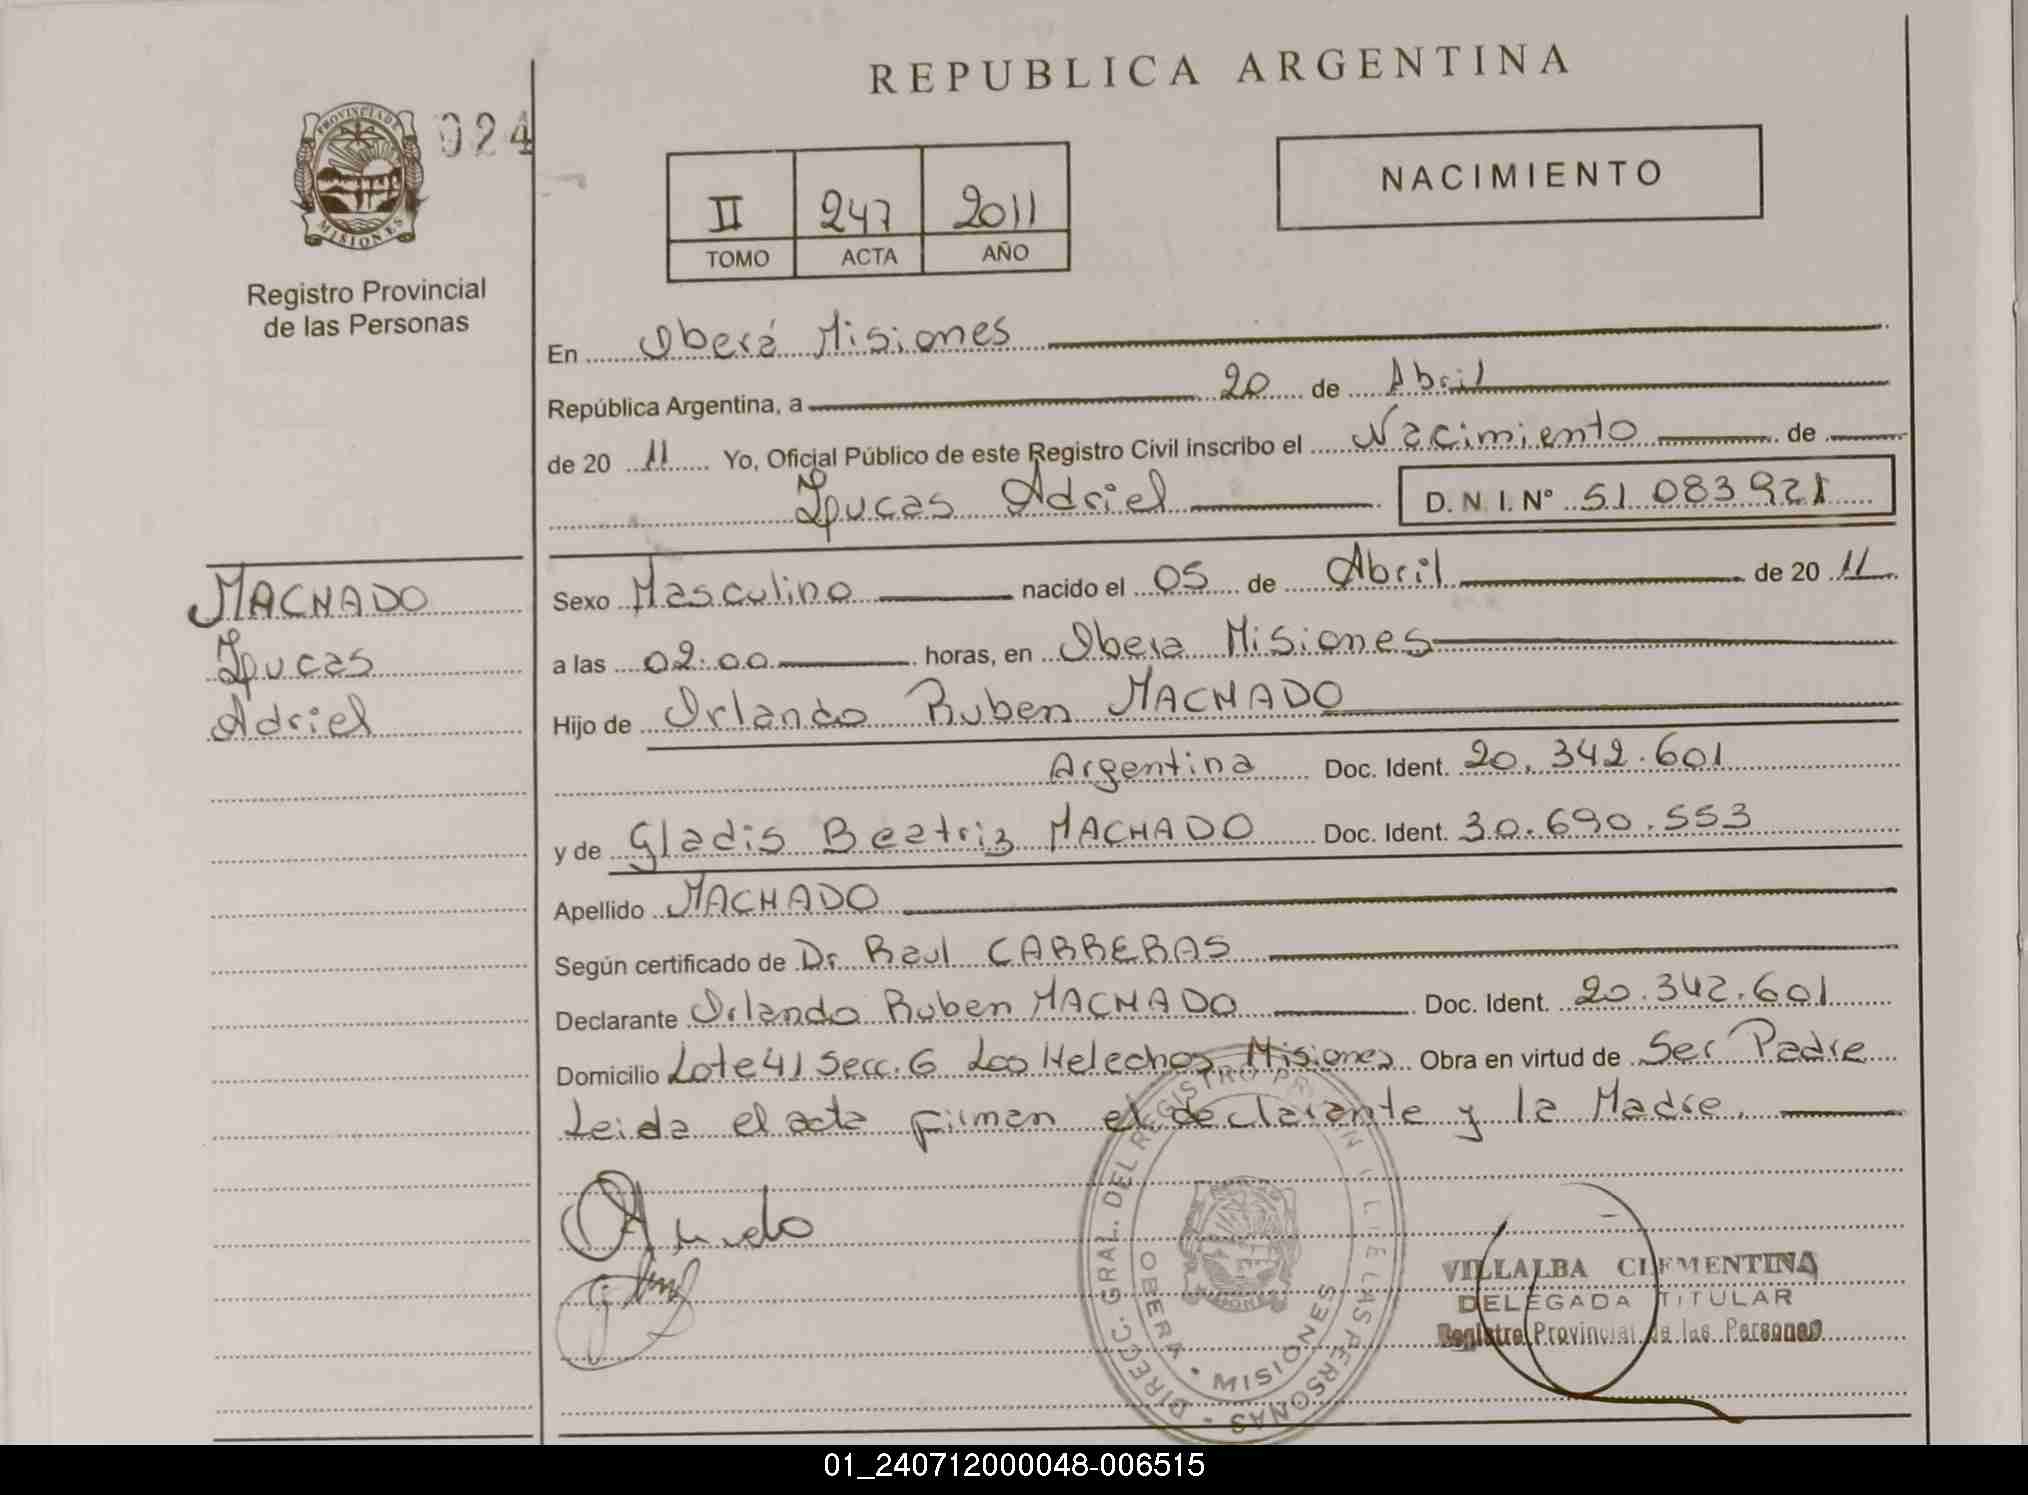 REPUBLICA ARGENTINA
PROVINCIA DE
MISIONES
024
Registro Provincial
de las Personas
II 247 2011
TOMO ACTA AÑO
NACIMIENTO
En Oberá Misiones
República Argentina, a 20 de Abril
de 20 11 Yo, Oficial Público de este Registro Civil inscribo el Nacimiento de
Lucas Adriel D. N. I. Nº 51.083.921
MACHADO
Lucas
Adriel
Sexo Masculino nacido el 05 de Abril de 20 11
a las 02:00 horas, en Obera Misiones
Hijo de Orlando Ruben MACHADO
Argentina Doc. Ident. 20.342.601
y de Gladis Beatriz MACHADO Doc. Ident. 30.690.553
Apellido MACHADO
Según certificado de Dr Raul CARRERAS
Declarante Orlando Ruben MACHADO Doc. Ident. 20.342.601
Domicilio Lote 41 Secc. 6 Los Helechos Misiones Obra en virtud de Ser Padre
Leida el acta firman el declarante y la Madre.
DIRECC. GRAL. DEL REGISTRO PROVINCIAL DE LAS PERSONAS
OBERA • MISIONES
VILLALBA CLEMENTINA
DELEGADA TITULAR
Registro Provincial de las Personas
01_240712000048-006515